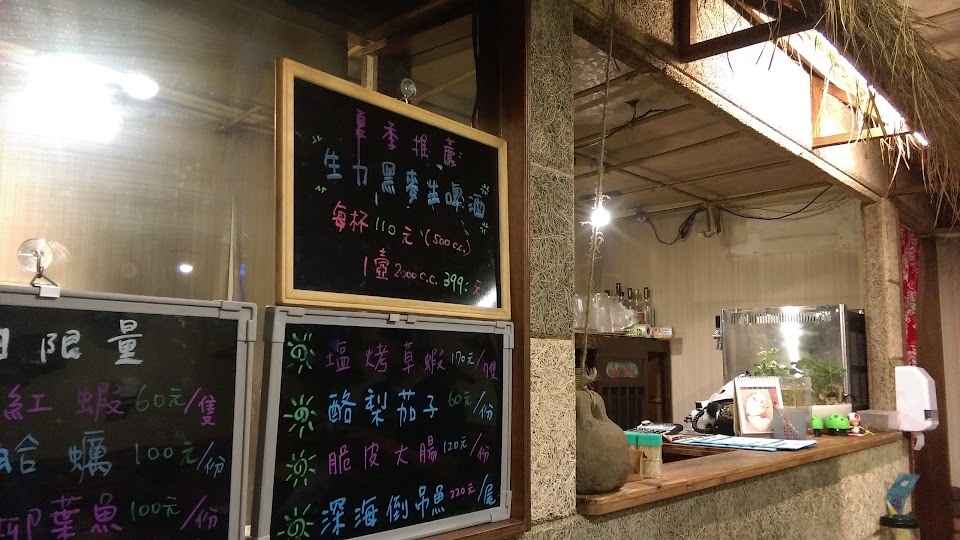 夏季推薦
生力黑麥生啤酒
每杯110元(500c.c.)
1壺2000c.c. 399.元
日限量
紅蝦60元/隻
蛤蠣100元/份
柳葉魚100元/份
塩烤草蝦170元/7隻
酪梨茄子60元/份
脆皮大腸120元/份
深海倒吊魚220元/尾